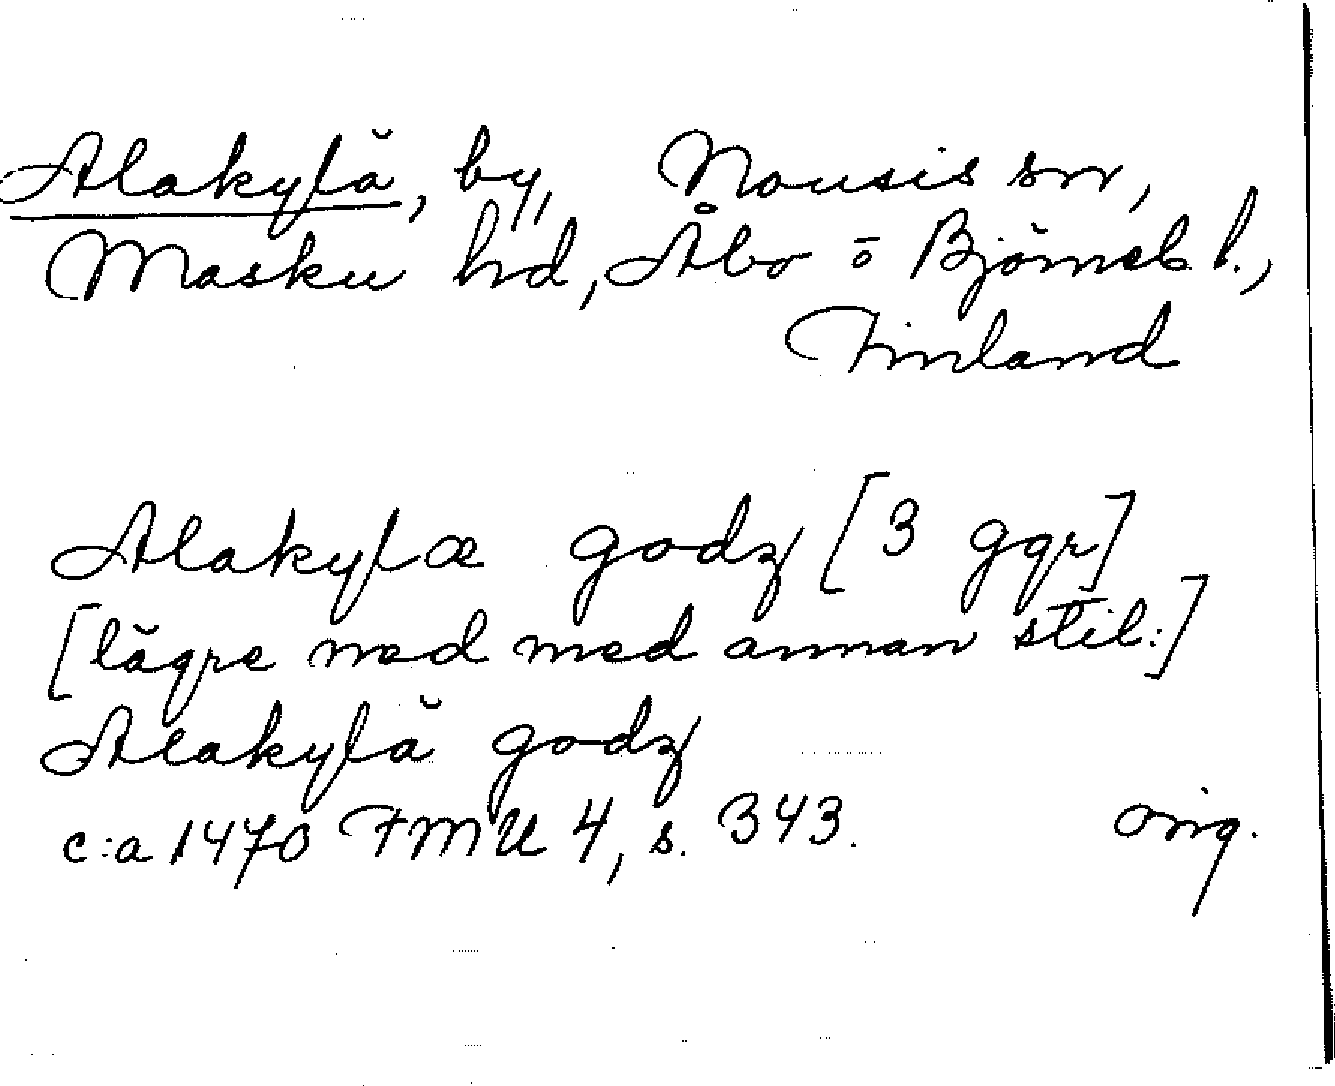 Alakylä, by, Nousis sn,
Masku hd, Åbo o Björneb. l.,
Finland
Alakylæ godz [3 ggr]
[lägre ned med annan stil:]
Alakylä godz
c:a 1470 FMU 4, s. 343. orig.